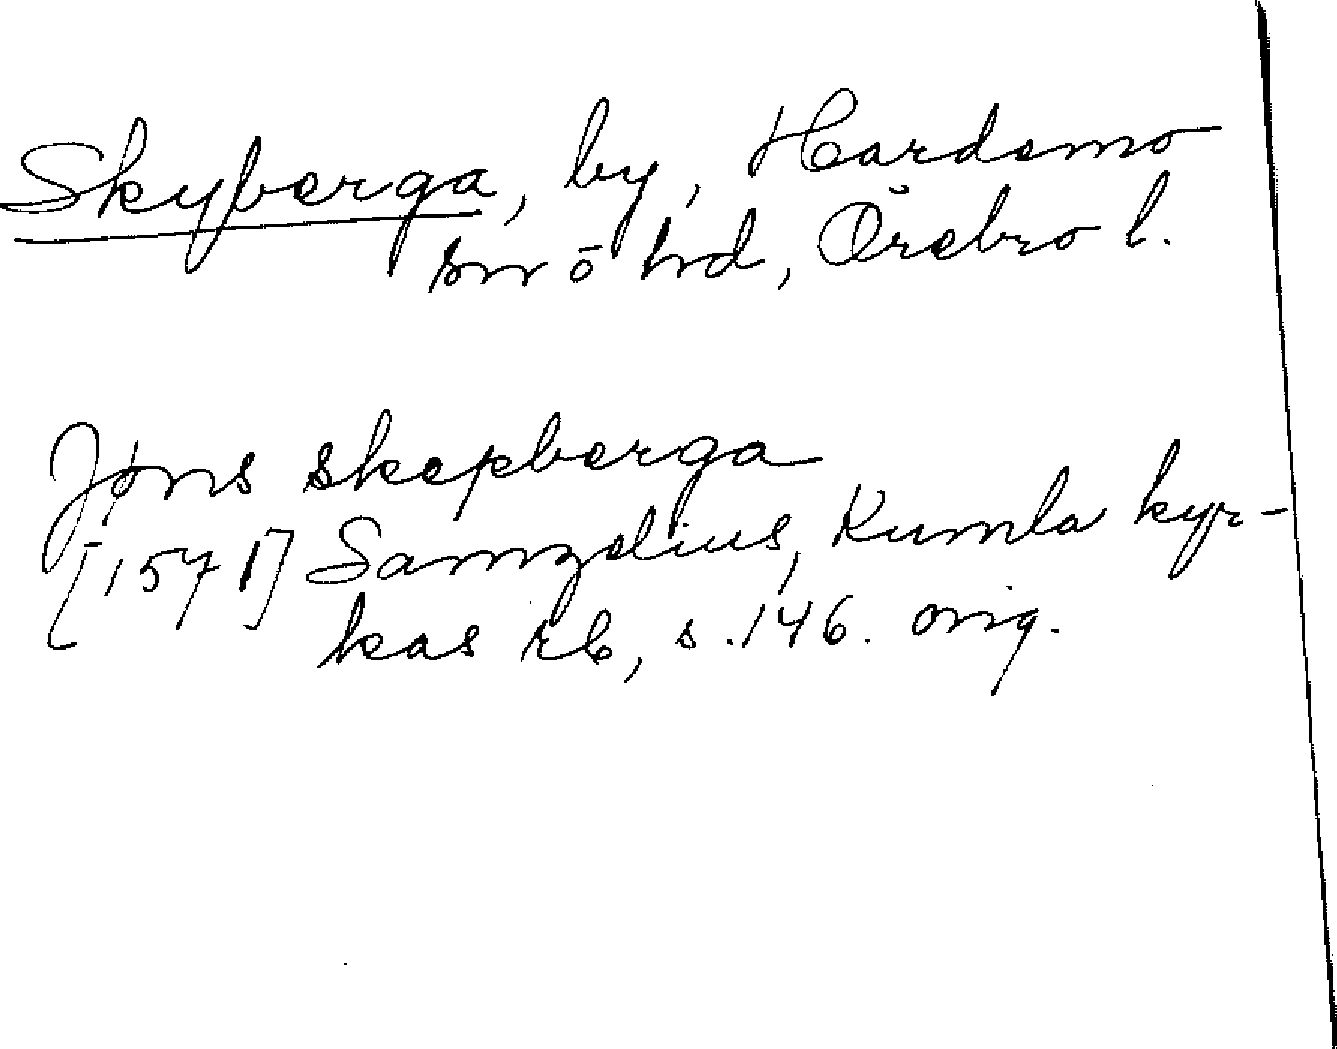 Skyberga, by, Hardemo
sn o hd, Örebro l.
Jöns skepberga
[1571] Samzelius, Kumla kyr-
kas rb, s. 146. orig.